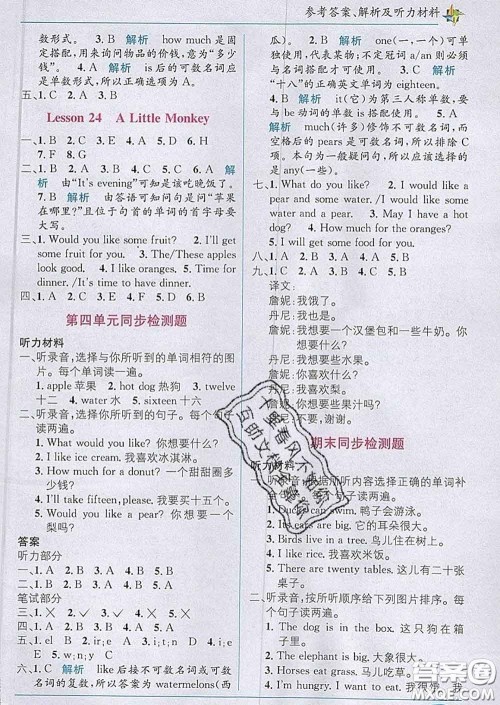 参考答案、解析及听力材料
数形式。 3. B 解析 how much是固
定搭配，用来询问物品的价钱，意为“多少
钱”。 4. A 解析 is后的可数名词应
是单数形式，所以正确选项为A
五、1. C 2. A 3. B 4. B 5. A
Lesson 24 A Little Monkey
一、1. B 2. D 3. A 4. C 5. E 6. H
7. F 8. G
二、1. C 2. C 3. A 4. C 5. A 6. A 解
析 由“It's evening”可知是该吃晚饭了。
7. B 解析 由答语可知问句是问“苹果
在哪里?”且位于句首的单词的首字母要
大写。
三、1. Would you like some fruit? 2. I'll
get some fruit for you. 3. The/These apples
look good. 4. I like oranges. 5. Time for
dinner. /It's time for dinner.
四、1. A 2. C 3. B 4. C 5. C 6. B
第四单元同步检测题
听力材料
一、听录音，选择与你所听到的单词相符的图
片。每个单词读一遍。
1. apple 苹果 2. hot dog 热狗 3. twelve
十二 4. water 水 5. sixteen 十六
二、听录音，选择你所听到的句子。每个句子
读两遍。
1. What would you like? 你想要什么?
2. I like ice cream. 我喜欢冰淇淋。
3. How much for a donut? 一个甜甜圈多
少钱?
4. I'll take fifteen, please. 我要买十五个。
5. Would you like a pear? 你想要一个
梨吗?
答案
听力部分
一、1. A 2. B 3. A 4. B 5. A
二、1. A 2. B 3. B 4. A 5. A
笔试部分
三、1. × 2. ✓ 3. × 4. ✓ 5. ✓
四、1. B 2. B 3. A 4. B 5. A
五、1. el 2. ir; e 3. i; t 4. w; t; e
5. w; e
六、1. C 解析 like后接不可数名词或可数
名词的复数，所以答案为watermelons(西
瓜)。 2. B 解析 one(一，一个)可单
独使用，代替某人或某物，不定冠词a/an则必须
与名词搭配使用。 3. A 解析
“十八”的正确英文单词为eighteen。
4. B 解析 it(它)为第三人称单数，要
与be动词的单数is搭配使用，所以选B。
5. A 解析 much(许多)修饰不可数名词，而
空格后的pears是可数名词，所以排除C
项。本句为一般疑问句，所以应该选择的
是any(一些)。
七、1. What do you like? 2. I would like a
pear and some water. / I would like some
water and a pear. 3. May I have a hot
dog? 4. How much for the oranges?
八、1. C 2. D 3. A 4. B
九、1. C 2. C 3. B 4. B 5. C
译文:
詹妮:我饿了。
丹尼:我也是。
詹妮:我想要一个汉堡包和一些牛奶。你
想要什么?
丹尼:我想要些水果。
詹妮:你喜欢什么?
丹尼:我喜欢梨。
詹妮:你想要些果汁吗?
丹尼:不，谢谢。
期末同步检测题
听力材料
一、听录音，根据所听内容选择正确的单词补
全句子。每个句子读两遍。
1. Ducks can swim. 鸭子会游泳。
2. Its ears are big. 它的耳朵很大。
3. Birds live in a tree. 鸟儿住在树上。
4. I like rice. 我喜欢米饭。
5. There are twenty tables. 这儿有二十张
桌子。
二、听录音，按所听顺序给下列图片排序。每
个句子读两遍。
1. The dog is in the box. 这只狗在
盒子里。
2. The elephant is big. 大象很大。
3. Horses eat grass. 马儿吃草。
4. I'm hungry. I want to eat. 我很饿。我
千难春风不如你
互助文档全靠你
答案圈
MXQE.COM